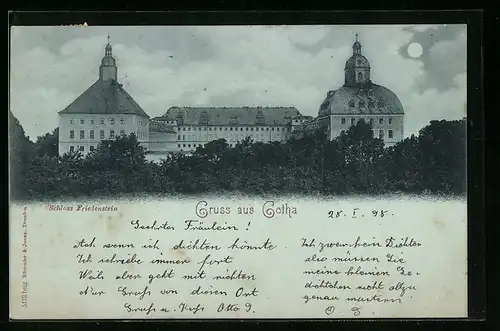 Schloss Friedenstein
Gruss aus Gotha
28. I. 98.
Geehrtes Fräulein!
Ach wenn ich dichten könnte
Ich schriebe immer fort
Weil aber geht mit nichten
Nur Gruß von diesen Ort
Gruß u. Kuß Otto
Ich zwar kein Dichter
also müssen Sie
meine kleinen Ge-
dichtchen nicht allzu
genau mustern!
Rönsche & Jonas, Dresden